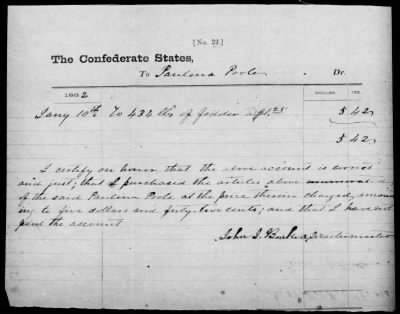 [No. 22.]
The Confederate States,
To Paulina Poole, Dr.
DOLLARS CTS.
1862
Jany 10th To 432 lbs of fodder @ $1.25 5 42
5 42
I certify on honor that the above account is correct
and just; that I purchased the articles above
of the said Paulina Poole at the price therein charged, amount
ing to five dollars and forty-two cents; and that I have not
paid the account
John J. Quartermaster